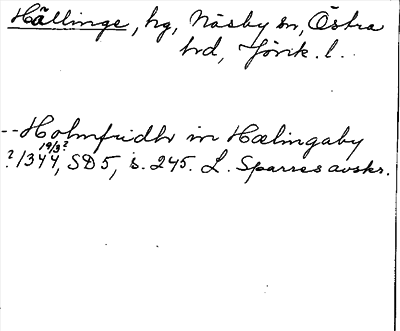 Hällinge, hg, Näsby sn, Östra
hrd, Jönk. l.
--Holmfridhr in Hælingaby
19/3?
?1344, SD5, s. 245. L. Sparres avskr.